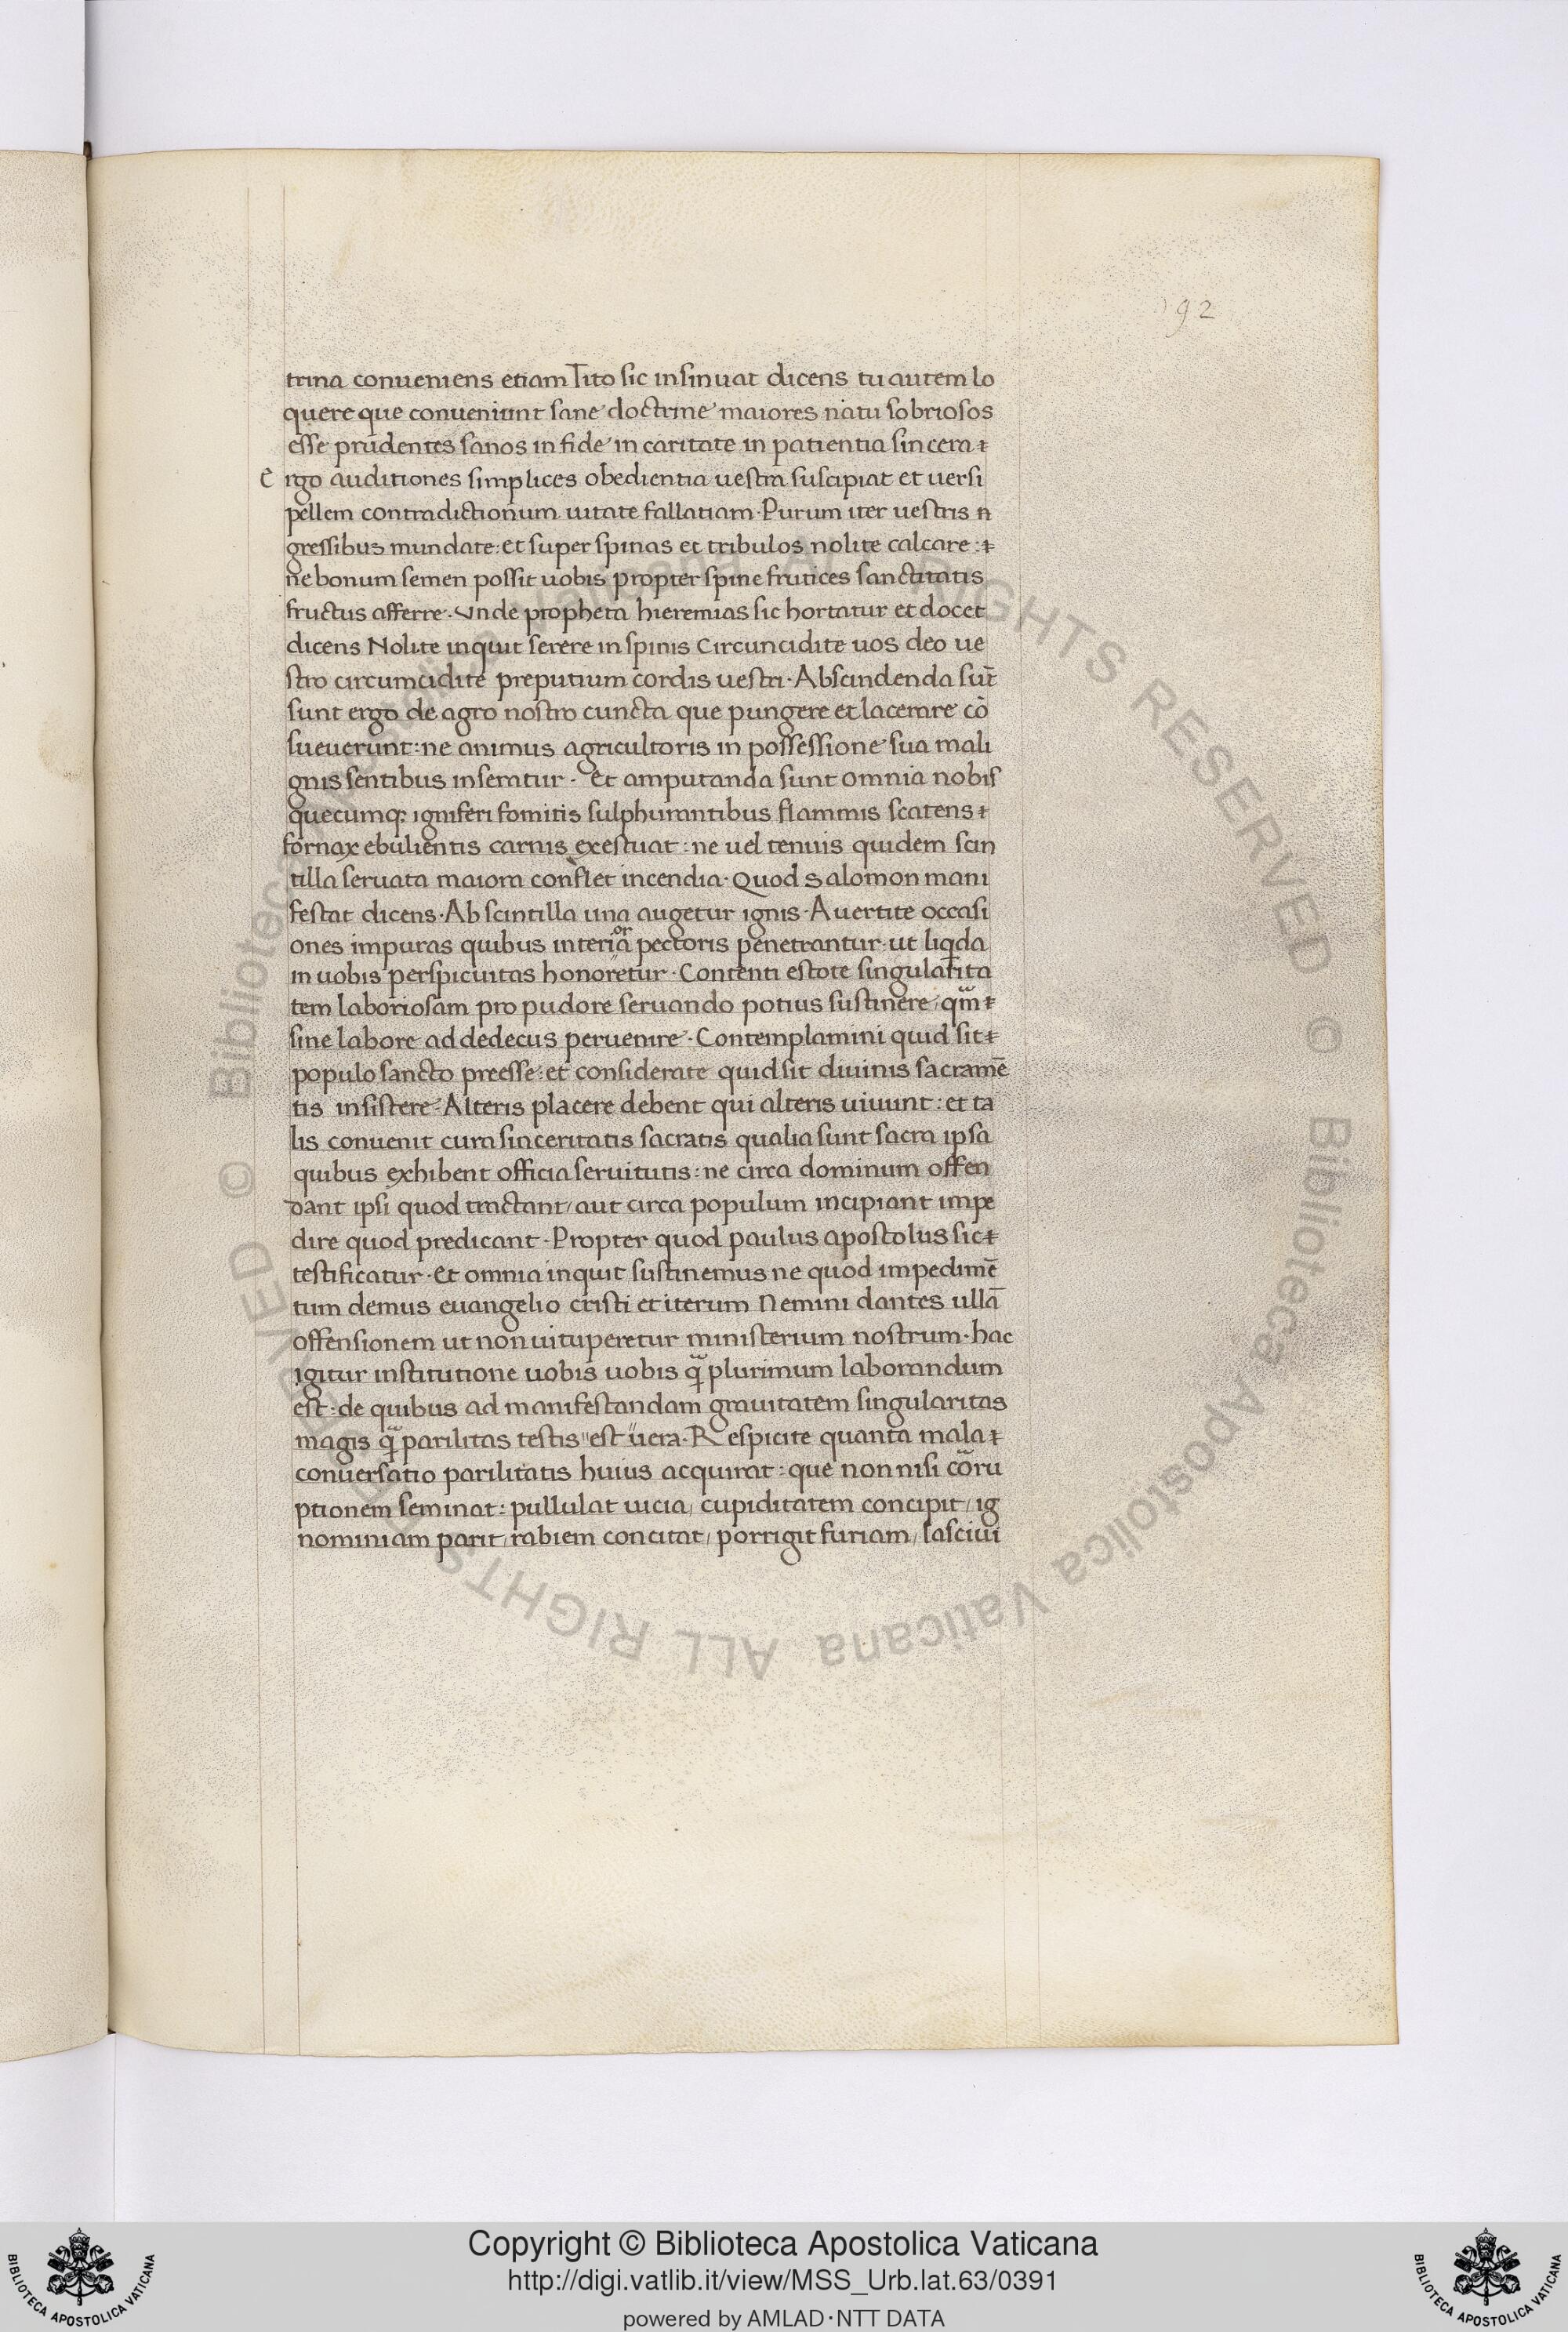 192
trina conueniens etiam Tito sic insinuat dicens tu autem lo
quere que conueniunt sane doctrine maiores natu sobriosos
esse prudentes sanos in fide in caritate in patientia sincera
Ergo auditiones simplices obedientia uestra suscipiat et uersi
pellem contradictionum uitate fallatiam. Purum iter uestris
gressibus mundate: et super spinas et tribulos nolite calcare:
ne bonum semen possit uobis propter spine frutices sanctitatis
fructus afferre. Vnde propheta hieremias sic hortatur et docet
dicens Nolite inquit serere in spinis Circuncidite uos deo ue
stro circumcidite preputium cordis uestri. Abscindenda sūt
sunt ergo de agro nostro cuncta que pungere et lacerare cō
sueuerunt: ne animus agricultoris in possessione sua mali
gnis sentibus inseratur. Et amputanda sunt omnia nobis
quecumq; igniferi fomitis sulphurantibus flammis scatens
fornax ebulientis carnis exestuat: ne uel tenuis quidem scin
tilla seruata maiora conflet incendia. Quod Salomon mani
festat dicens. Ab scintilla una augetur ignis. Auertite occasi
ones impuras quibus interiora pectoris penetrantur: ut liqda
in uobis perspicuitas honoretur. Contenti estote singularita
tem laboriosam pro pudore seruando potius sustinere, qm
sine labore ad dedecus peruenire. Contemplamini quid sit
populo sancto preesse: et considerate quid sit diuinis sacramē
tis insistere. Alteris placere debent qui alteris uiuunt: et ta
lis conuenit cura sinceritatis sacratis qualia sunt sacra ipsa
quibus exhibent officia seruitutis: ne circa dominum offen
dant ipsi quod tractant, aut circa populum incipiant impe
dire quod predicant. Propter quod paulus apostolus sic
testificatur. Et omnia inquit sustinemus ne quod impedimē
tum demus euangelio cristi et iterum Nemini dantes ullā
offensionem ut non uituperetur ministerium nostrum. hac
igitur institutione uobis uobis q̄ plurimum laborandum
est: de quibus ad manifestandam grauitatem singularitas
magis q̄ parilitas testis "est" uera. Respicite quanta mala
conuersatio parilitatis huius acquirat: que non nisi coru
ptionem seminat: pullulat uicia, cupiditatem concipit, ig
nominiam parit, rabiem concitat, porrigit furiam, lasciui
© Biblioteca Apostolica Vaticana ALL RIGHTS RESERVED © Biblioteca Apostolica Vaticana ALL RIGHTS RESERVED
Copyright © Biblioteca Apostolica Vaticana
http://digi.vatlib.it/view/MSS_Urb.lat.63/0391
powered by AMLAD·NTT DATA
BIBLIOTECA APOSTOLICA VATICANA
BIBLIOTECA APOSTOLICA VATICANA